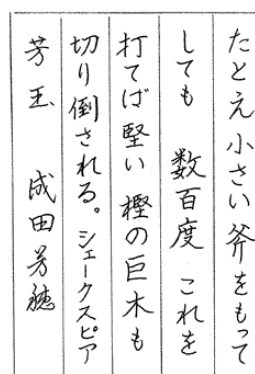 たとえ小さい斧をもって
しても 数百度 これを
打てば 堅い 樫の巨木も
切り倒される。シェークスピア
芳玉 成田芳穂